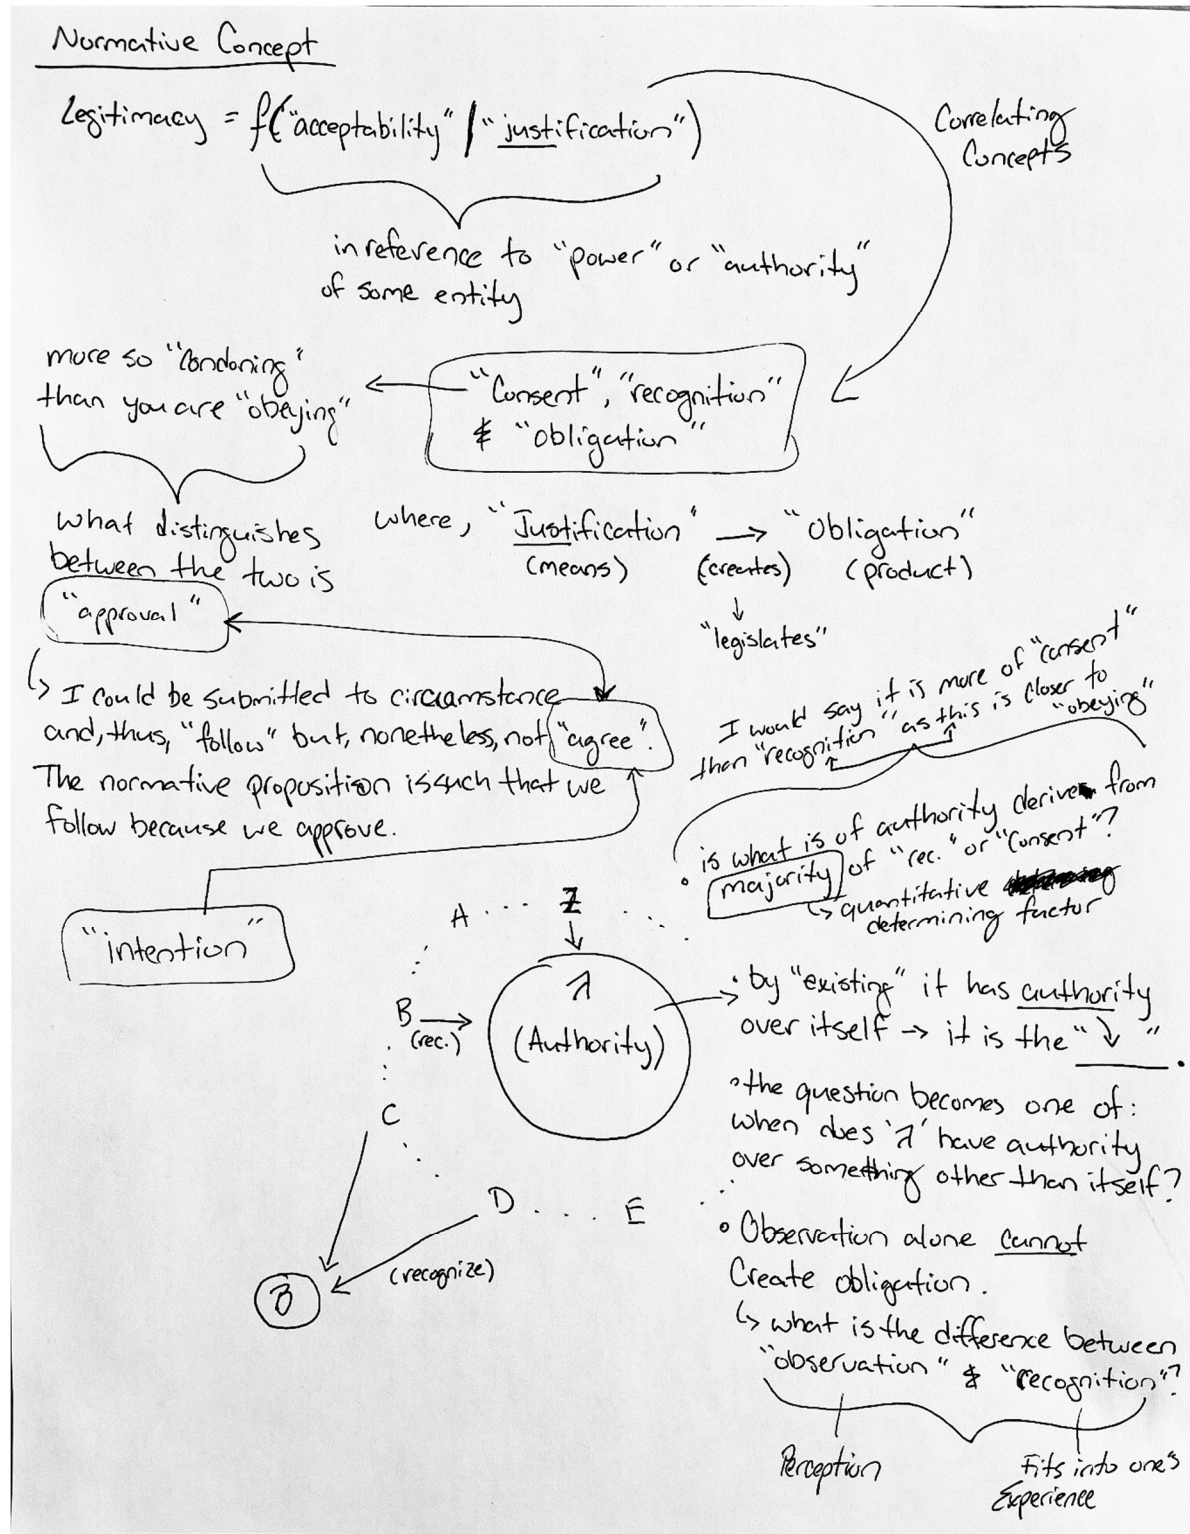 Normative Concept
Legitimacy = f("acceptability" / "justification")
Correlating
Concepts
in reference to "power" or "authority"
of some entity
more so "condoning"
than you are "obeying"
"Consent", "recognition"
& "obligation"
what distinguishes
between the two is
"approval"
where, "Justification" → "Obligation"
(means) (creates) (product)
↓
"legislates"
↳ I could be submitted to circumstance
and, thus, "follow" but, nonetheless, not "agree".
The normative proposition is such that we
follow because we approve.
"intention"
I would say it is more of "consent"
than "recognition" as this is closer to
"obeying"
• is what is of authority derived from
majority of "rec." or "consent"?
↳ quantitative
determining factor
A . . . Z . . .
↓
λ
(Authority)
B →
(rec.)
C
D . . . . E
(recognize)
• by "existing" it has authority
over itself → it is the "↓".
• the question becomes one of:
when does 'λ' have authority
over something other than itself?
• Observation alone cannot
Create obligation.
↳ what is the difference between
"observation" & "recognition"?
Perception
Fits into one's
Experience